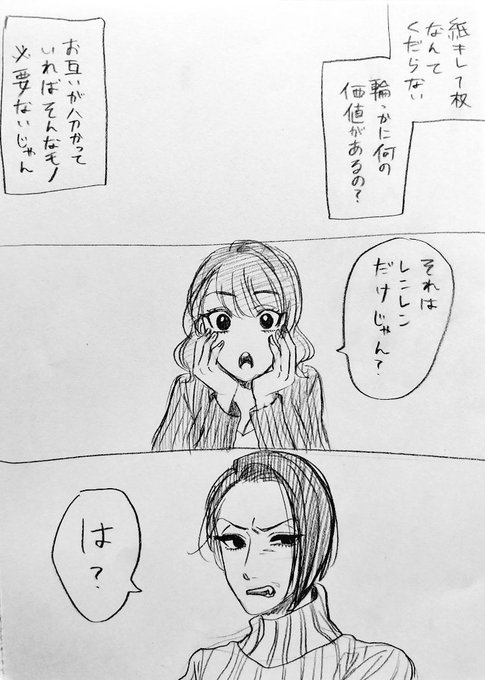 紙キレ1枚
なんて
くだらない
輪っかに何の
価値があるの?
お互いが分かって
いればそんなモノ
必要ないじゃん
それは
レニレン
だけじゃん?
は?